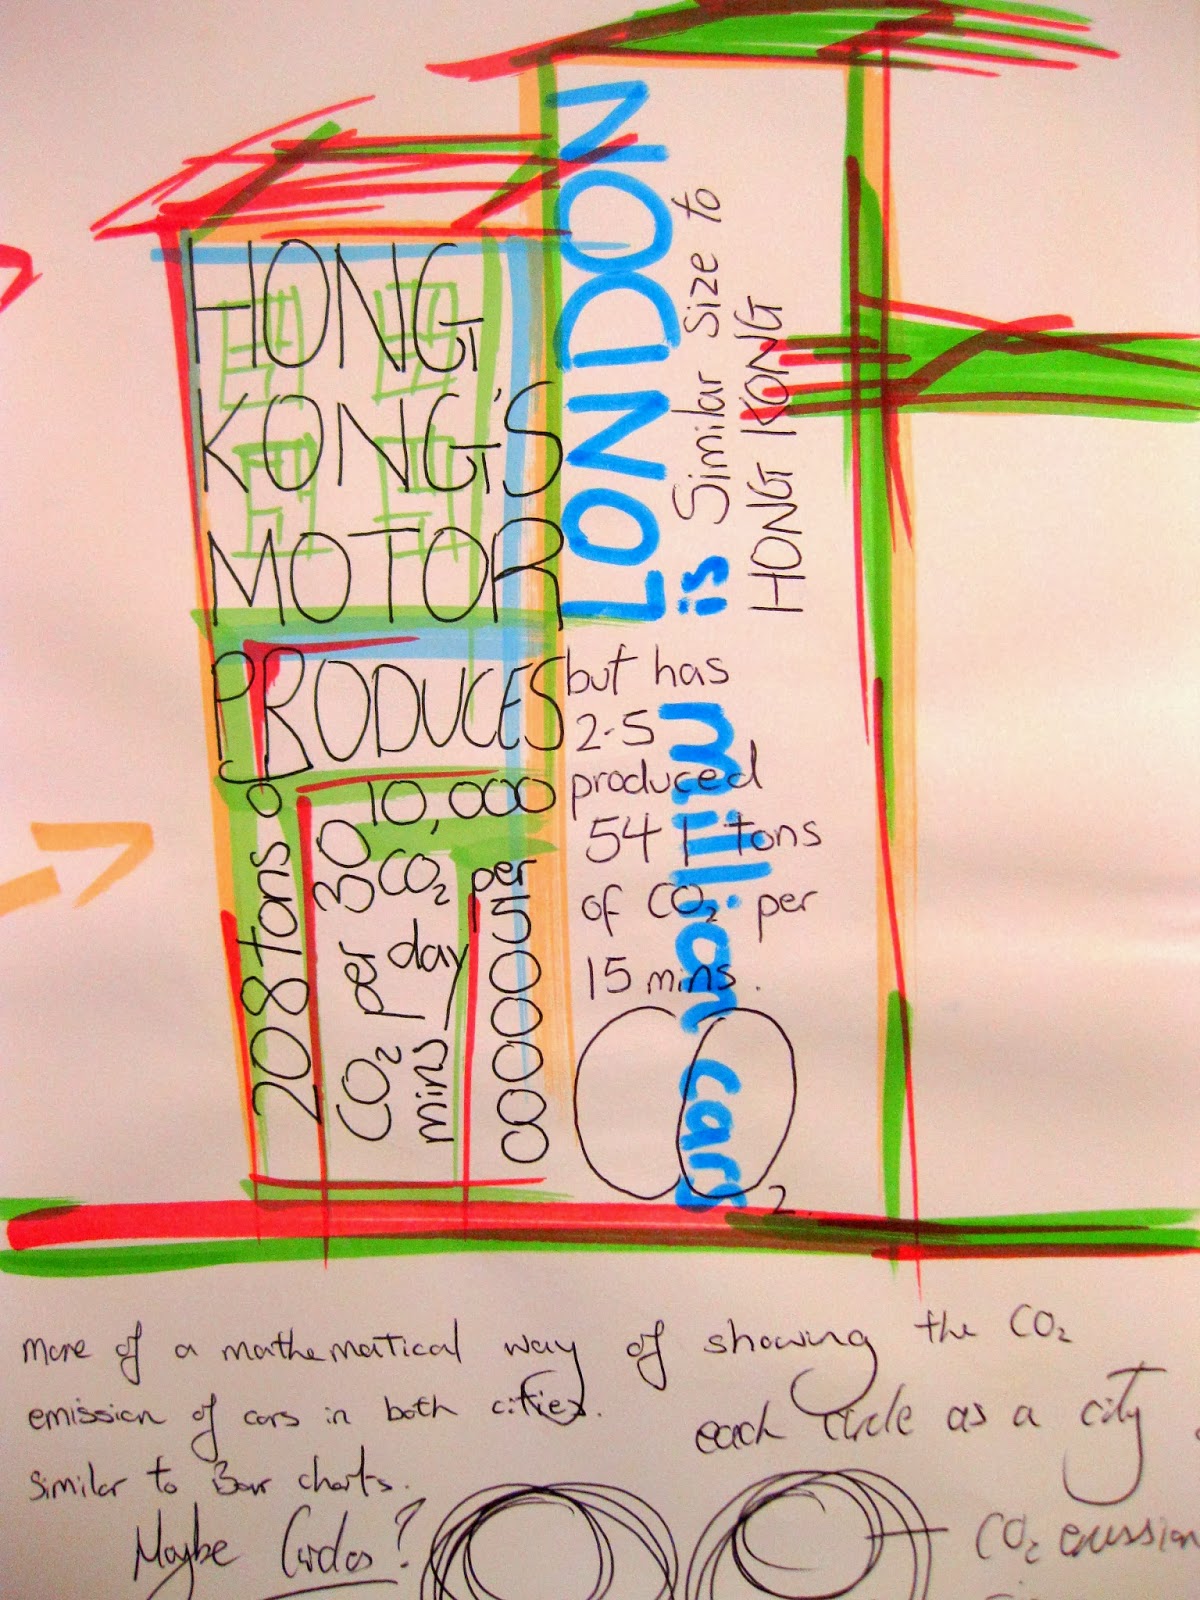 HONG
KONG'S
MOTOR
PRODUCES
10,000
CO2 per
day
208 tons o
CO2 per 30
mins
LONDON
is Similar Size to
HONG KONG
but has
2.5
million cars
produced
541 tons
of CO2 per
15 mins.
2.
more of a mathematical way of showing the CO2
emission of cars in both cities.
Similar to Bar charts.
each circle as a city
Maybe Circles?
CO2 emission